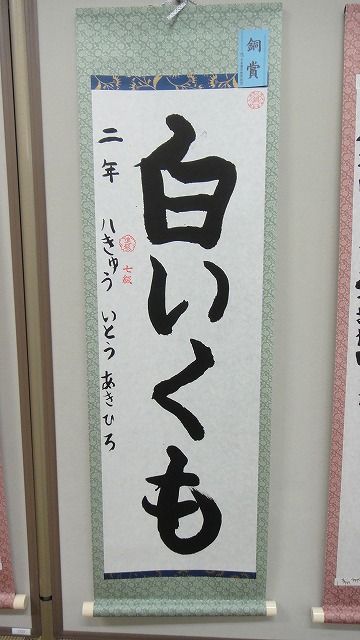 銅賞
白いくも
二年 八きゅう いとう あきひろ
七級